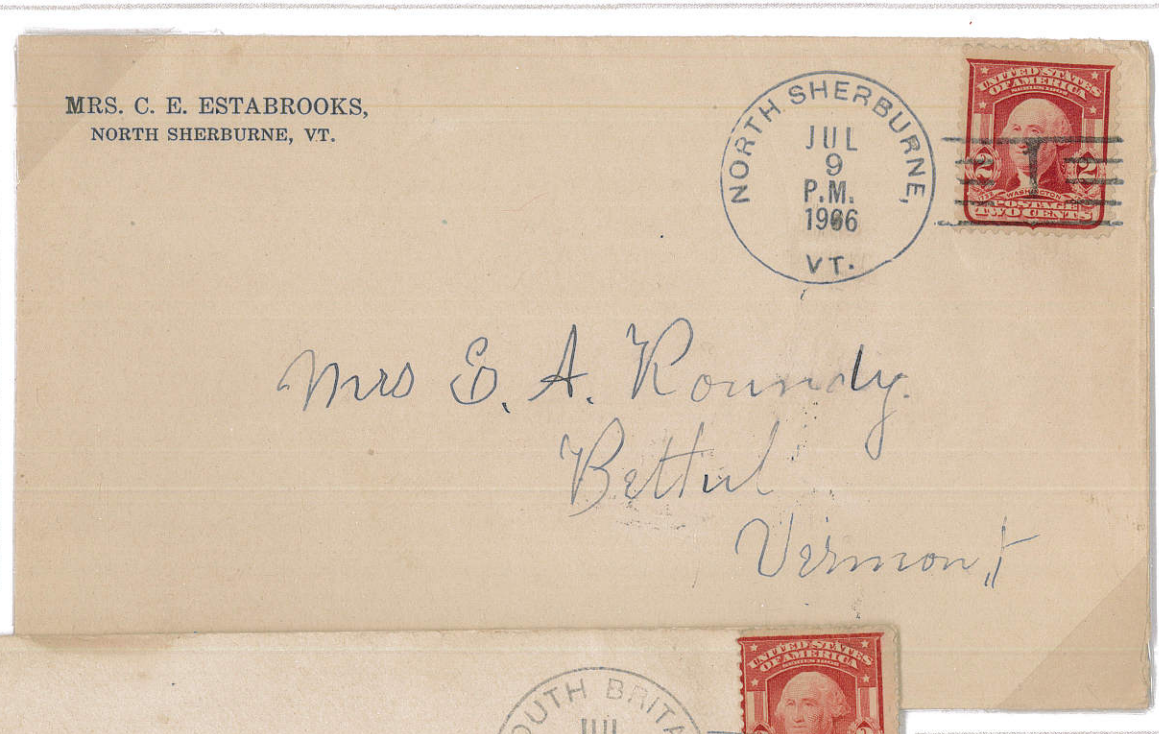 MRS. C. E. ESTABROOKS,
NORTH SHERBURNE, VT.
NORTH SHERBURNE,
JUL
9
P.M.
1906
VT.
UNITED STATES
OF AMERICA
SERIES 1902
2 2
1
WASHINGTON
POSTAGE
TWO CENTS
Mrs E. A. Roundy.
Bethel
Vermont
UNITED STATES
OF AMERICA
SERIES 1902
OUTH BRITA
JUL